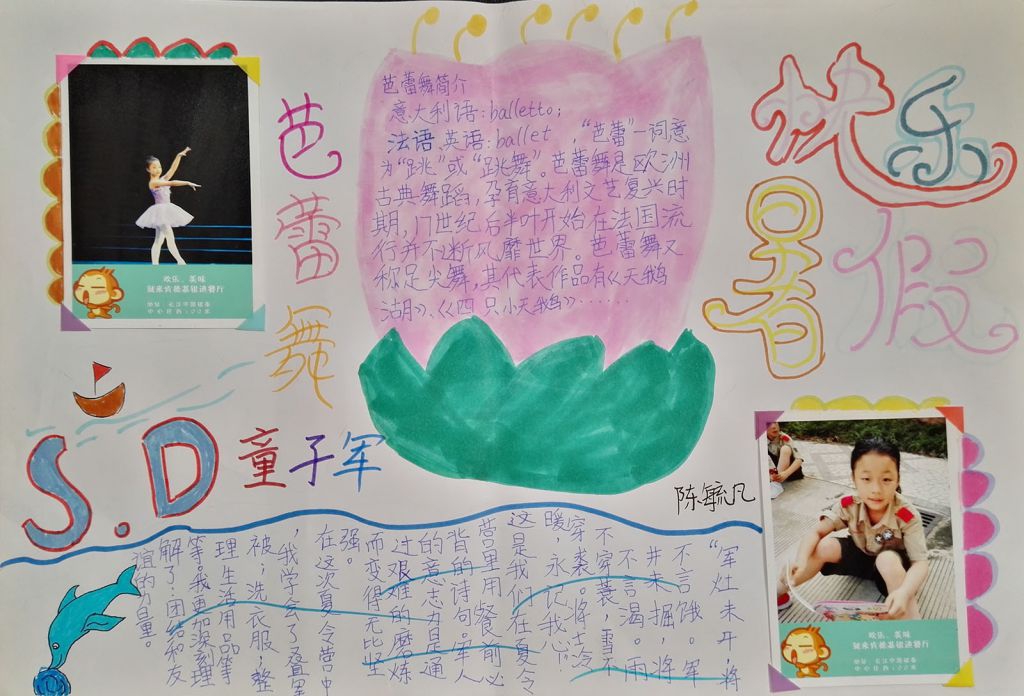 快乐
暑假
芭蕾舞
芭蕾舞简介
意大利语:balletto;
法语 英语:ballet "芭蕾"一词意
为"跳"或"跳舞"。芭蕾舞是欧洲
古典舞蹈,孕育意大利文艺复兴时
期,17世纪后半叶开始在法国流
行并不断风靡世界。芭蕾舞又
称足尖舞,其代表作品有《天鹅
湖》、《四只小天鹅》……
欢乐、美味
就来肯德基银进餐厅
S.D 童子军
陈毓凡
"军灶未开,将
不言饿。军
井未掘,将
不言渴。雨
不穿蓑,雪不
穿裘。将士冷
暖,永记我心."
这是我们在夏令
营里用餐前必
背的诗句。军人
的意志力是通
过艰难的磨炼
而变得无比坚
强。
在这次夏令营中
,我学会了叠
被;洗衣服;整
理生活用品等
等,我更加深刻理
解了:团结和友
谊的力量。
欢乐、美味
就来肯德基银进餐厅